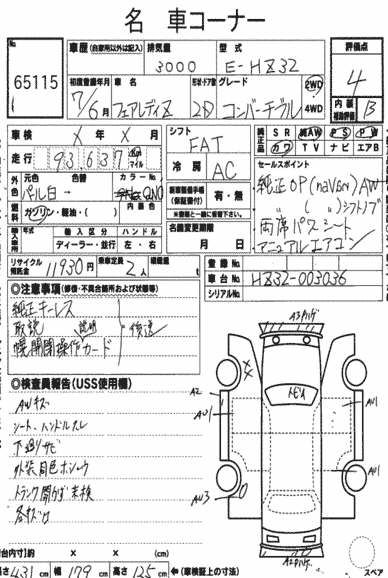 名車コーナー
No.
65115
車歴 (自家用以外は記入)
排気量 3000
型式 E-HZ32
評価点 4
初度登録年月 7/6月
車名 フェアレディZ
形状・ドア数 2D
グレード コンバーチブル
2WD
4WD
内装補助評価 B
車検 X年X月
シフト FAT
純正品 SR 純AW PS PW
カワ TV ナビ エアB
走行 93,637 km マイル
冷房 AC
セールスポイント
外色 元色 パール白 → 色替 カラーNo. QN0
純正OP (navan) AW
( 〃 ) シフトノブ
両席パワーシート
マニュアルエアコン
燃料 ガソリン・軽油・( )
内装色
新車整備手帳(保証書付) 有・無
※書類と一緒に保管下さい
輸入車 輸入区分 ハンドル
ディーラー・並行 左・右
名義変更期限 月 日
リサイクル預託金 11930円
乗車定員 2人
積載量 t
登録No.
車台No. HZ32-003036
シリアルNo.
◎注意事項 (修復・不具合箇所および状態等)
純正キーレス
取説
幌開閉操作カード
後送
◎検査員報告 (USS使用欄)
AWキズ
シート、ハンドルスレ
下廻りサビ
トランク開かず未検
トビA
A2
AU1
AU1
AU1
AU3
荷台内寸 約 x x (cm)
長さ 431 cm 幅 179 cm 高さ 125 cm ← (車検証上の寸法)
スペア